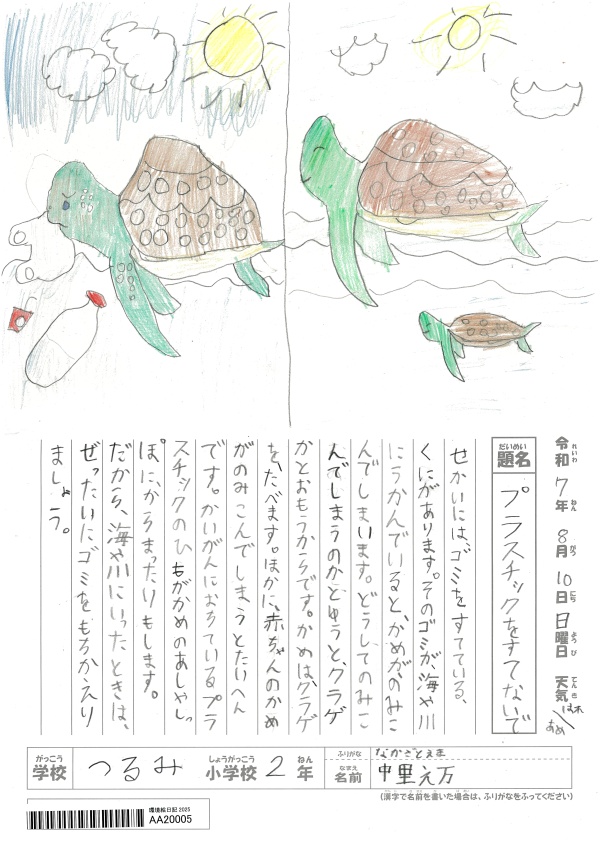 令和7年8月10日日曜日 天気 はれ あめ
れいわ ねん がつ にち ようび てんき
だいめい
題名 プラスチックをすてないで
せかいには、ゴミをすてている、
くにがあります。そのゴミが、海や川
にうかんでいると、かめが、のみこ
んでしまいます。どうしてのみこ
んでしまうのかとゆうと、クラゲ
かとおもうからです。かめは、クラゲ
を、たべます。ほかに、赤ちゃんのかめ
がのみこんでしまうとたいへん
です。かいがんにおちているプラ
スチックのひもがかめのあしやしっ
ぽに、からまったりもします。
だから、海や川にいったときは、
ぜったいにゴミをもちかえり
ましょう。
がっこう しょうがっこう ねん
学校 つるみ 小学校 2年
ふりがな なかざとえま
なまえ
名前 中里え万
(漢字で名前を書いた場合は、ふりがなをふってください)
環境絵日記 2025
AA20005